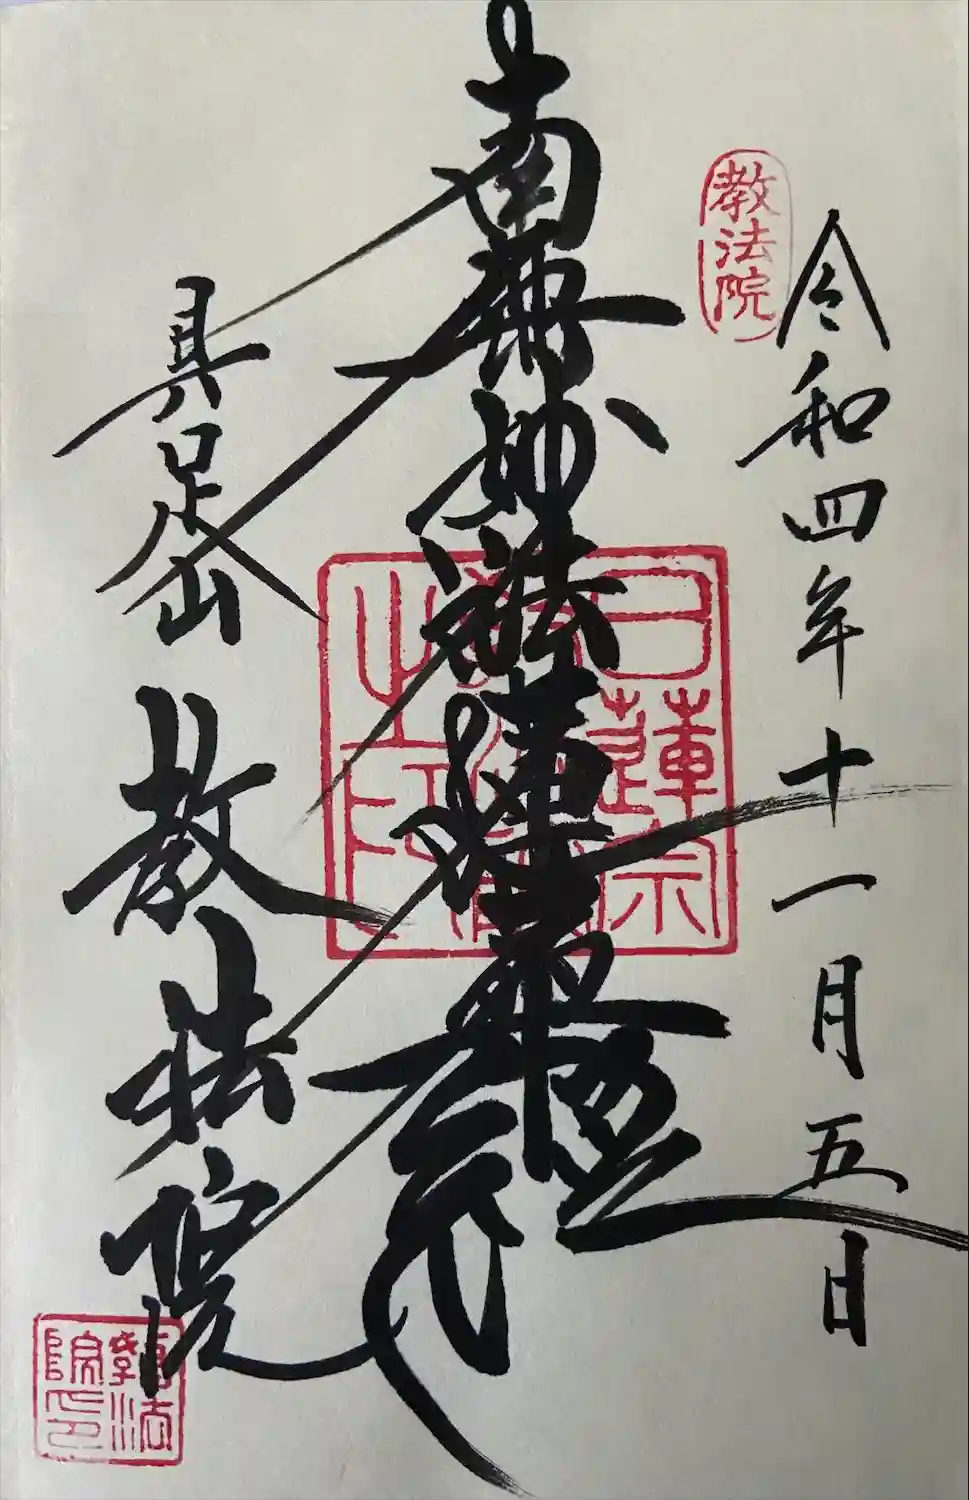 教法院
令和四年十一月五日
南無妙法蓮華經
具足山
教法院
日蓮宗
教法院印